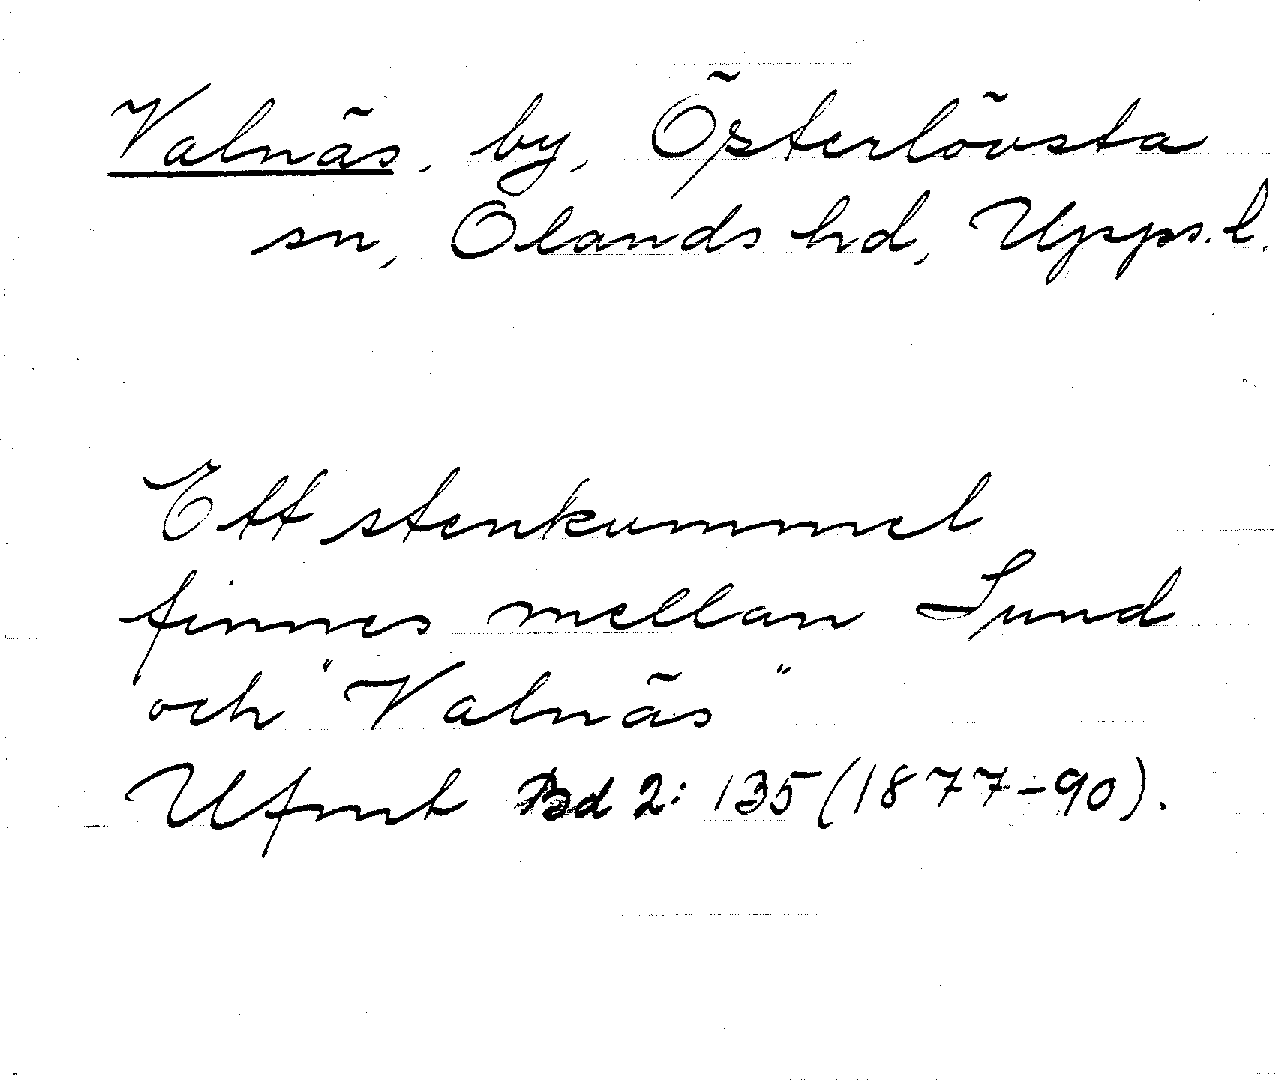 Valnäs, by, Österlövsta
sn, Olands hd, Upps. l.
Ett stenkummel
finnes mellan Sund
och "Valnäs"
Ufmt Bd 2: 135 (1877-90).